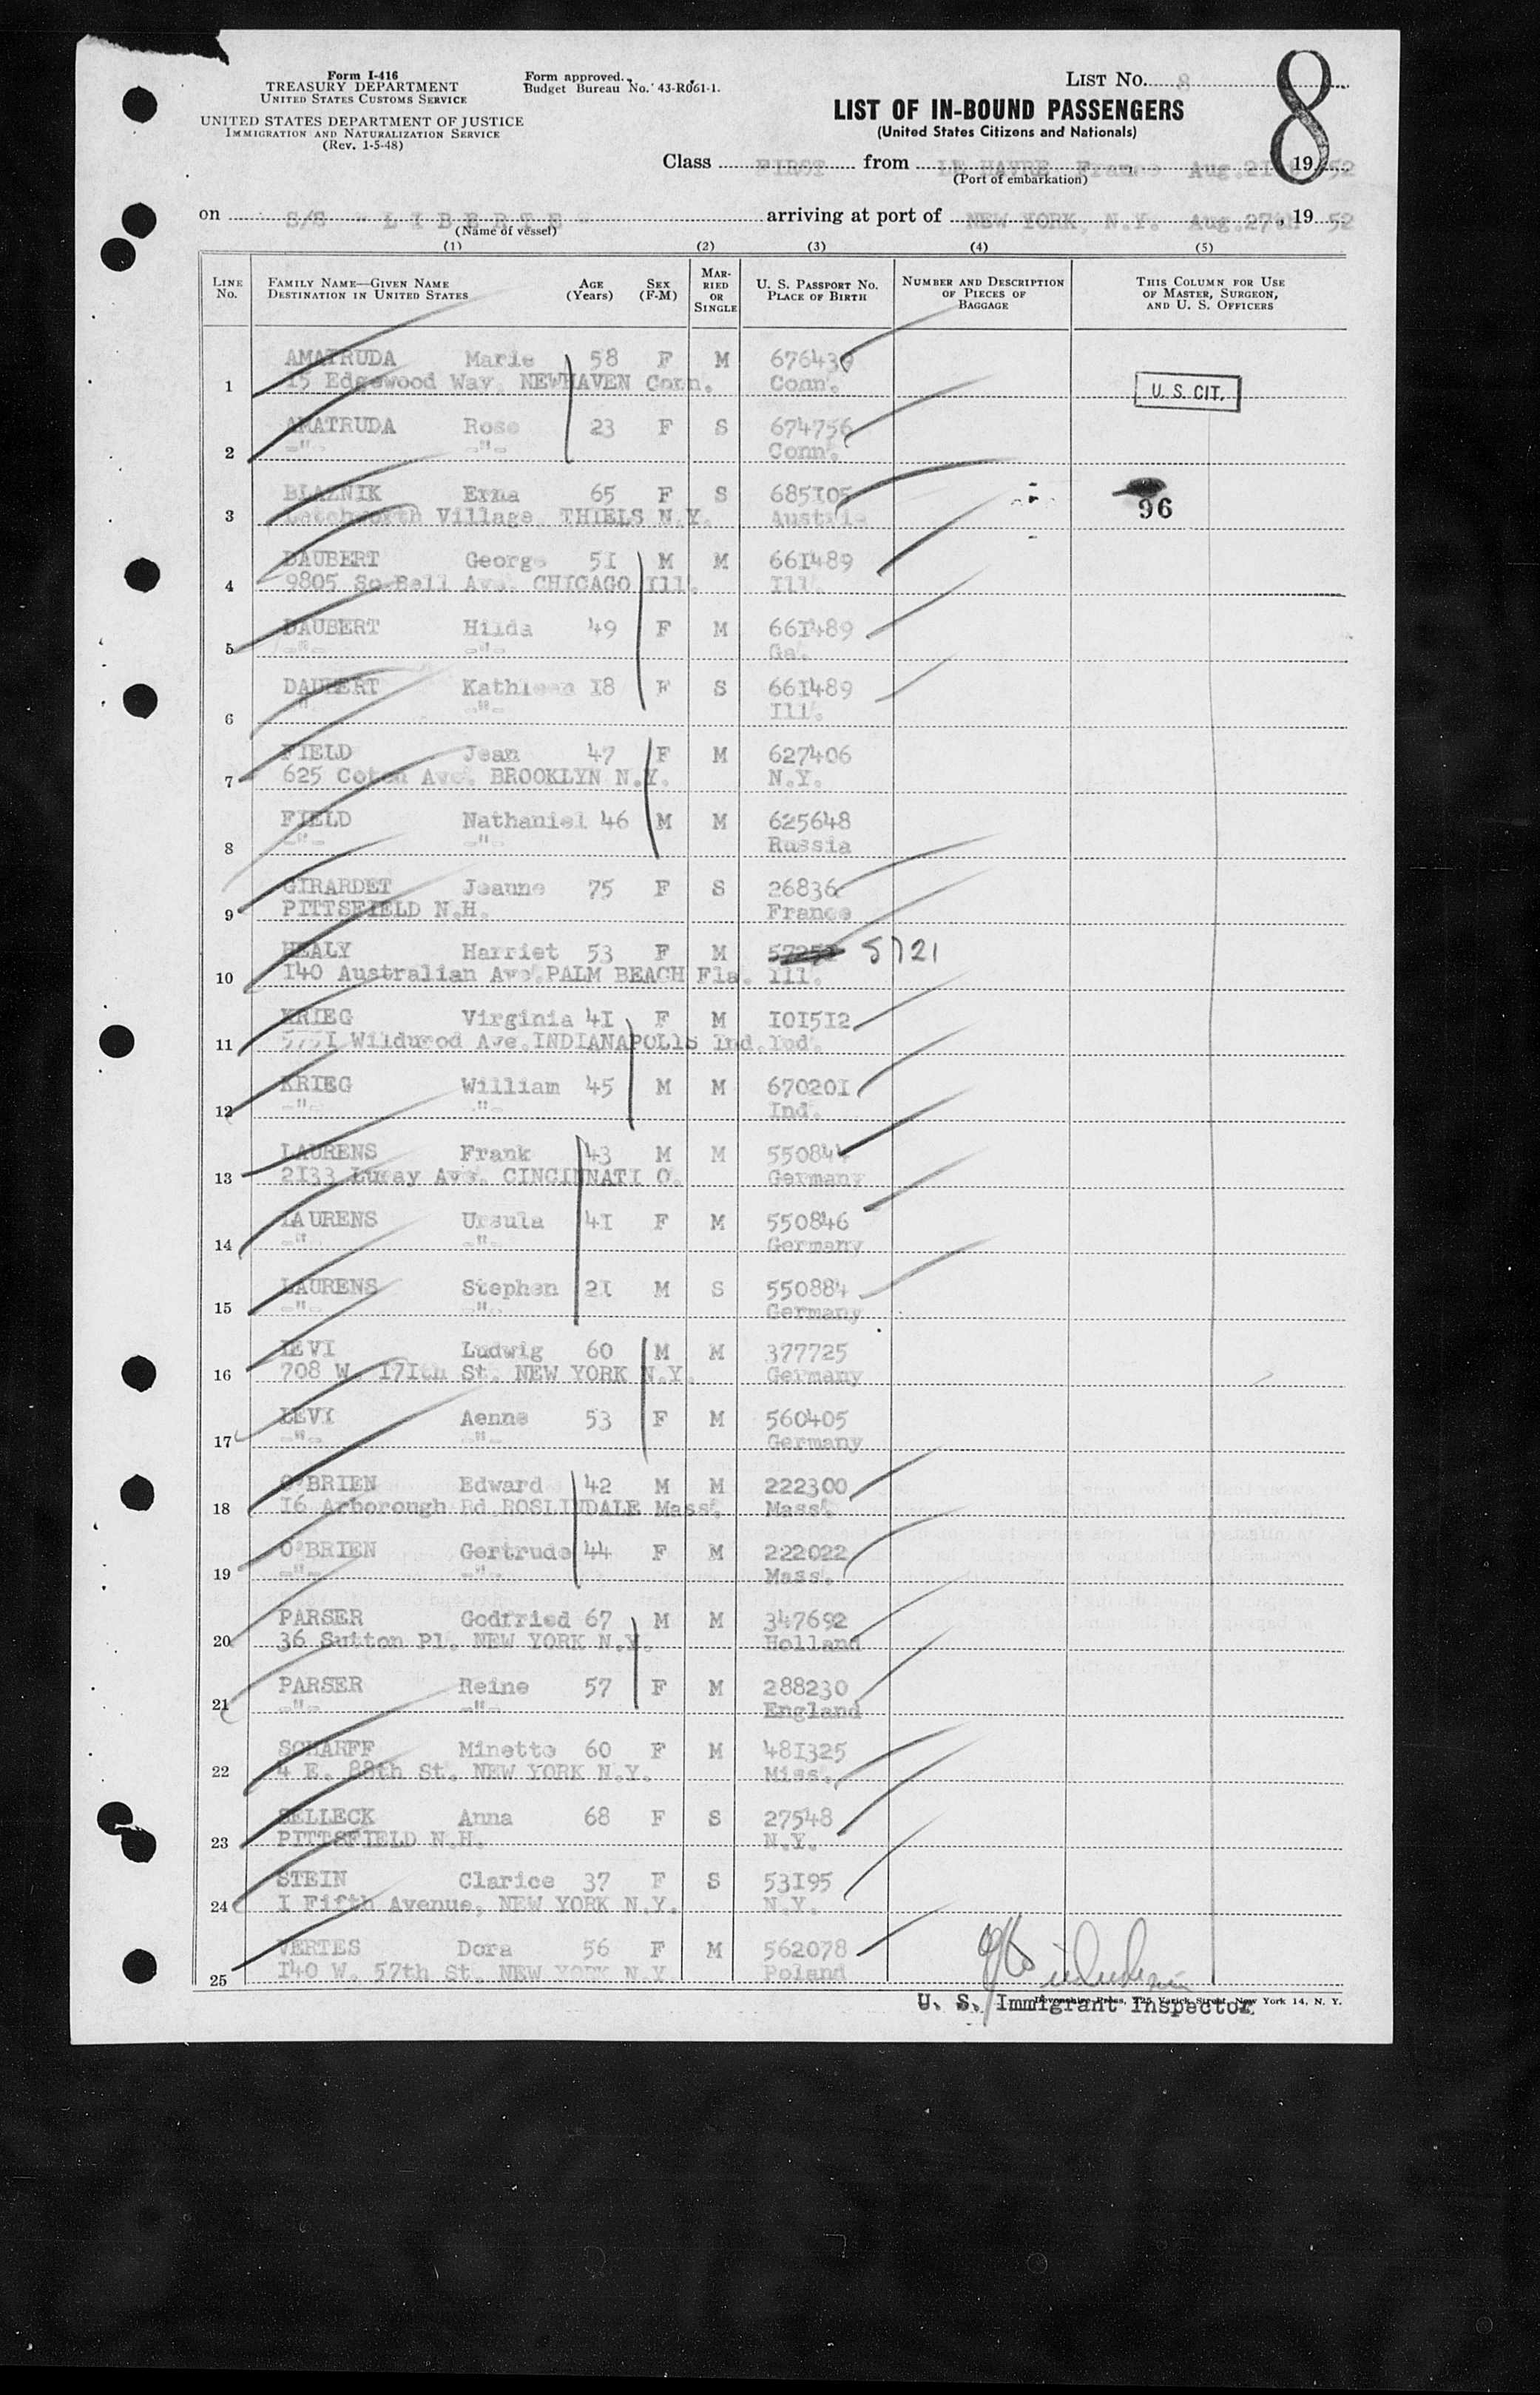 Form I-416
TREASURY DEPARTMENT
UNITED STATES CUSTOMS SERVICE
UNITED STATES DEPARTMENT OF JUSTICE
IMMIGRATION AND NATURALIZATION SERVICE
(Rev. 1-5-48)
Form approved.
Budget Bureau No. 43-R061-1.
LIST NO. 8
8
LIST OF IN-BOUND PASSENGERS
(United States Citizens and Nationals)
Class FIRST from LE HAVRE, France, Aug.21 1952
(Port of embarkation)
on S/S "LIBERTE" arriving at port of NEW YORK, N.Y. Aug.27th, 1952
(Name of vessel)
(1) (2) (3) (4) (5)
LINE NO. FAMILY NAME—GIVEN NAME DESTINATION IN UNITED STATES AGE (Years) SEX (F-M) MARRIED OR SINGLE U. S. PASSPORT NO. PLACE OF BIRTH NUMBER AND DESCRIPTION OF PIECES OF BAGGAGE THIS COLUMN FOR USE OF MASTER, SURGEON, AND U. S. OFFICERS
AMATRUDA Marie 58 F M 676439
1 15 Edgewood Way. NEWHAVEN Conn. Conn. U. S. CIT.
AMATRUDA Rose 23 F S 674756
2 -"- -"- Conn.
BLAZNIK Erna 65 F S 685105
3 Letchworth Village THIELS N.Y. Austria 96
DAUBERT George 51 M M 661489
4 9805 So Bell Ave. CHICAGO Ill. Ill.
DAUBERT Hilda 49 F M 661489
5 -"- -"- Ga.
DAUBERT Kathleen 18 F S 661489
6 " -"- Ill.
FIELD Jean 47 F M 627406
7 625 Ave. BROOKLYN N.Y. N.Y.
FIELD Nathaniel 46 M M 625648
8 -"- -"- Russia
GIRARDET Jeanne 75 F S 26836
9 PITTSFIELD N.H. France
HEALY Harriet 53 F M 5721
10 140 Australian Ave. PALM BEACH Fla. Ill.
KRIEG Virginia 41 F M 101512
11 Ave. INDIANAPOLIS Ind. Ind.
KRIEG William 45 M M 670201
12 -"- -"- Ind.
LAURENS Frank 43 M M 550844
13 2133 Luray Ave. CINCINNATI O. Germany
LAURENS Ursula 41 F M 550846
14 -"- -"- Germany
LAURENS Stephen 21 M S 550884
15 -"- -"- Germany
LEVI Ludwig 60 M M 377725
16 708 W. 171th St. NEW YORK N.Y. Germany
LEVI Aenne 53 F M 560405
17 -"- -"- Germany
O'BRIEN Edward 42 M M 222300
18 16 Arborough Rd. ROSLINDALE Mass. Mass.
O'BRIEN Gertrude 44 F M 222022
19 -"- -"- Mass.
PARSER Godfried 67 M M 347692
20 36 Sutton Pl. NEW YORK N.Y. Holland
PARSER Reine 57 F M 288230
21 -"- -"- England
SCHARFF Minette 60 F M 481325
22 4 E. 88th St. NEW YORK N.Y. Miss.
SELLECK Anna 68 F S 27548
23 PITTSFIELD N.H. N.Y.
STEIN Clarice 37 F S 53195
24 1 Fifth Avenue, NEW YORK N.Y. N.Y.
VERTES Dora 56 F M 562078
25 140 W. 57th St. NEW YORK N.Y. Poland
U. S. Immigrant Inspector
Devonshire Press, 225 Varick Street, New York 14, N. Y.